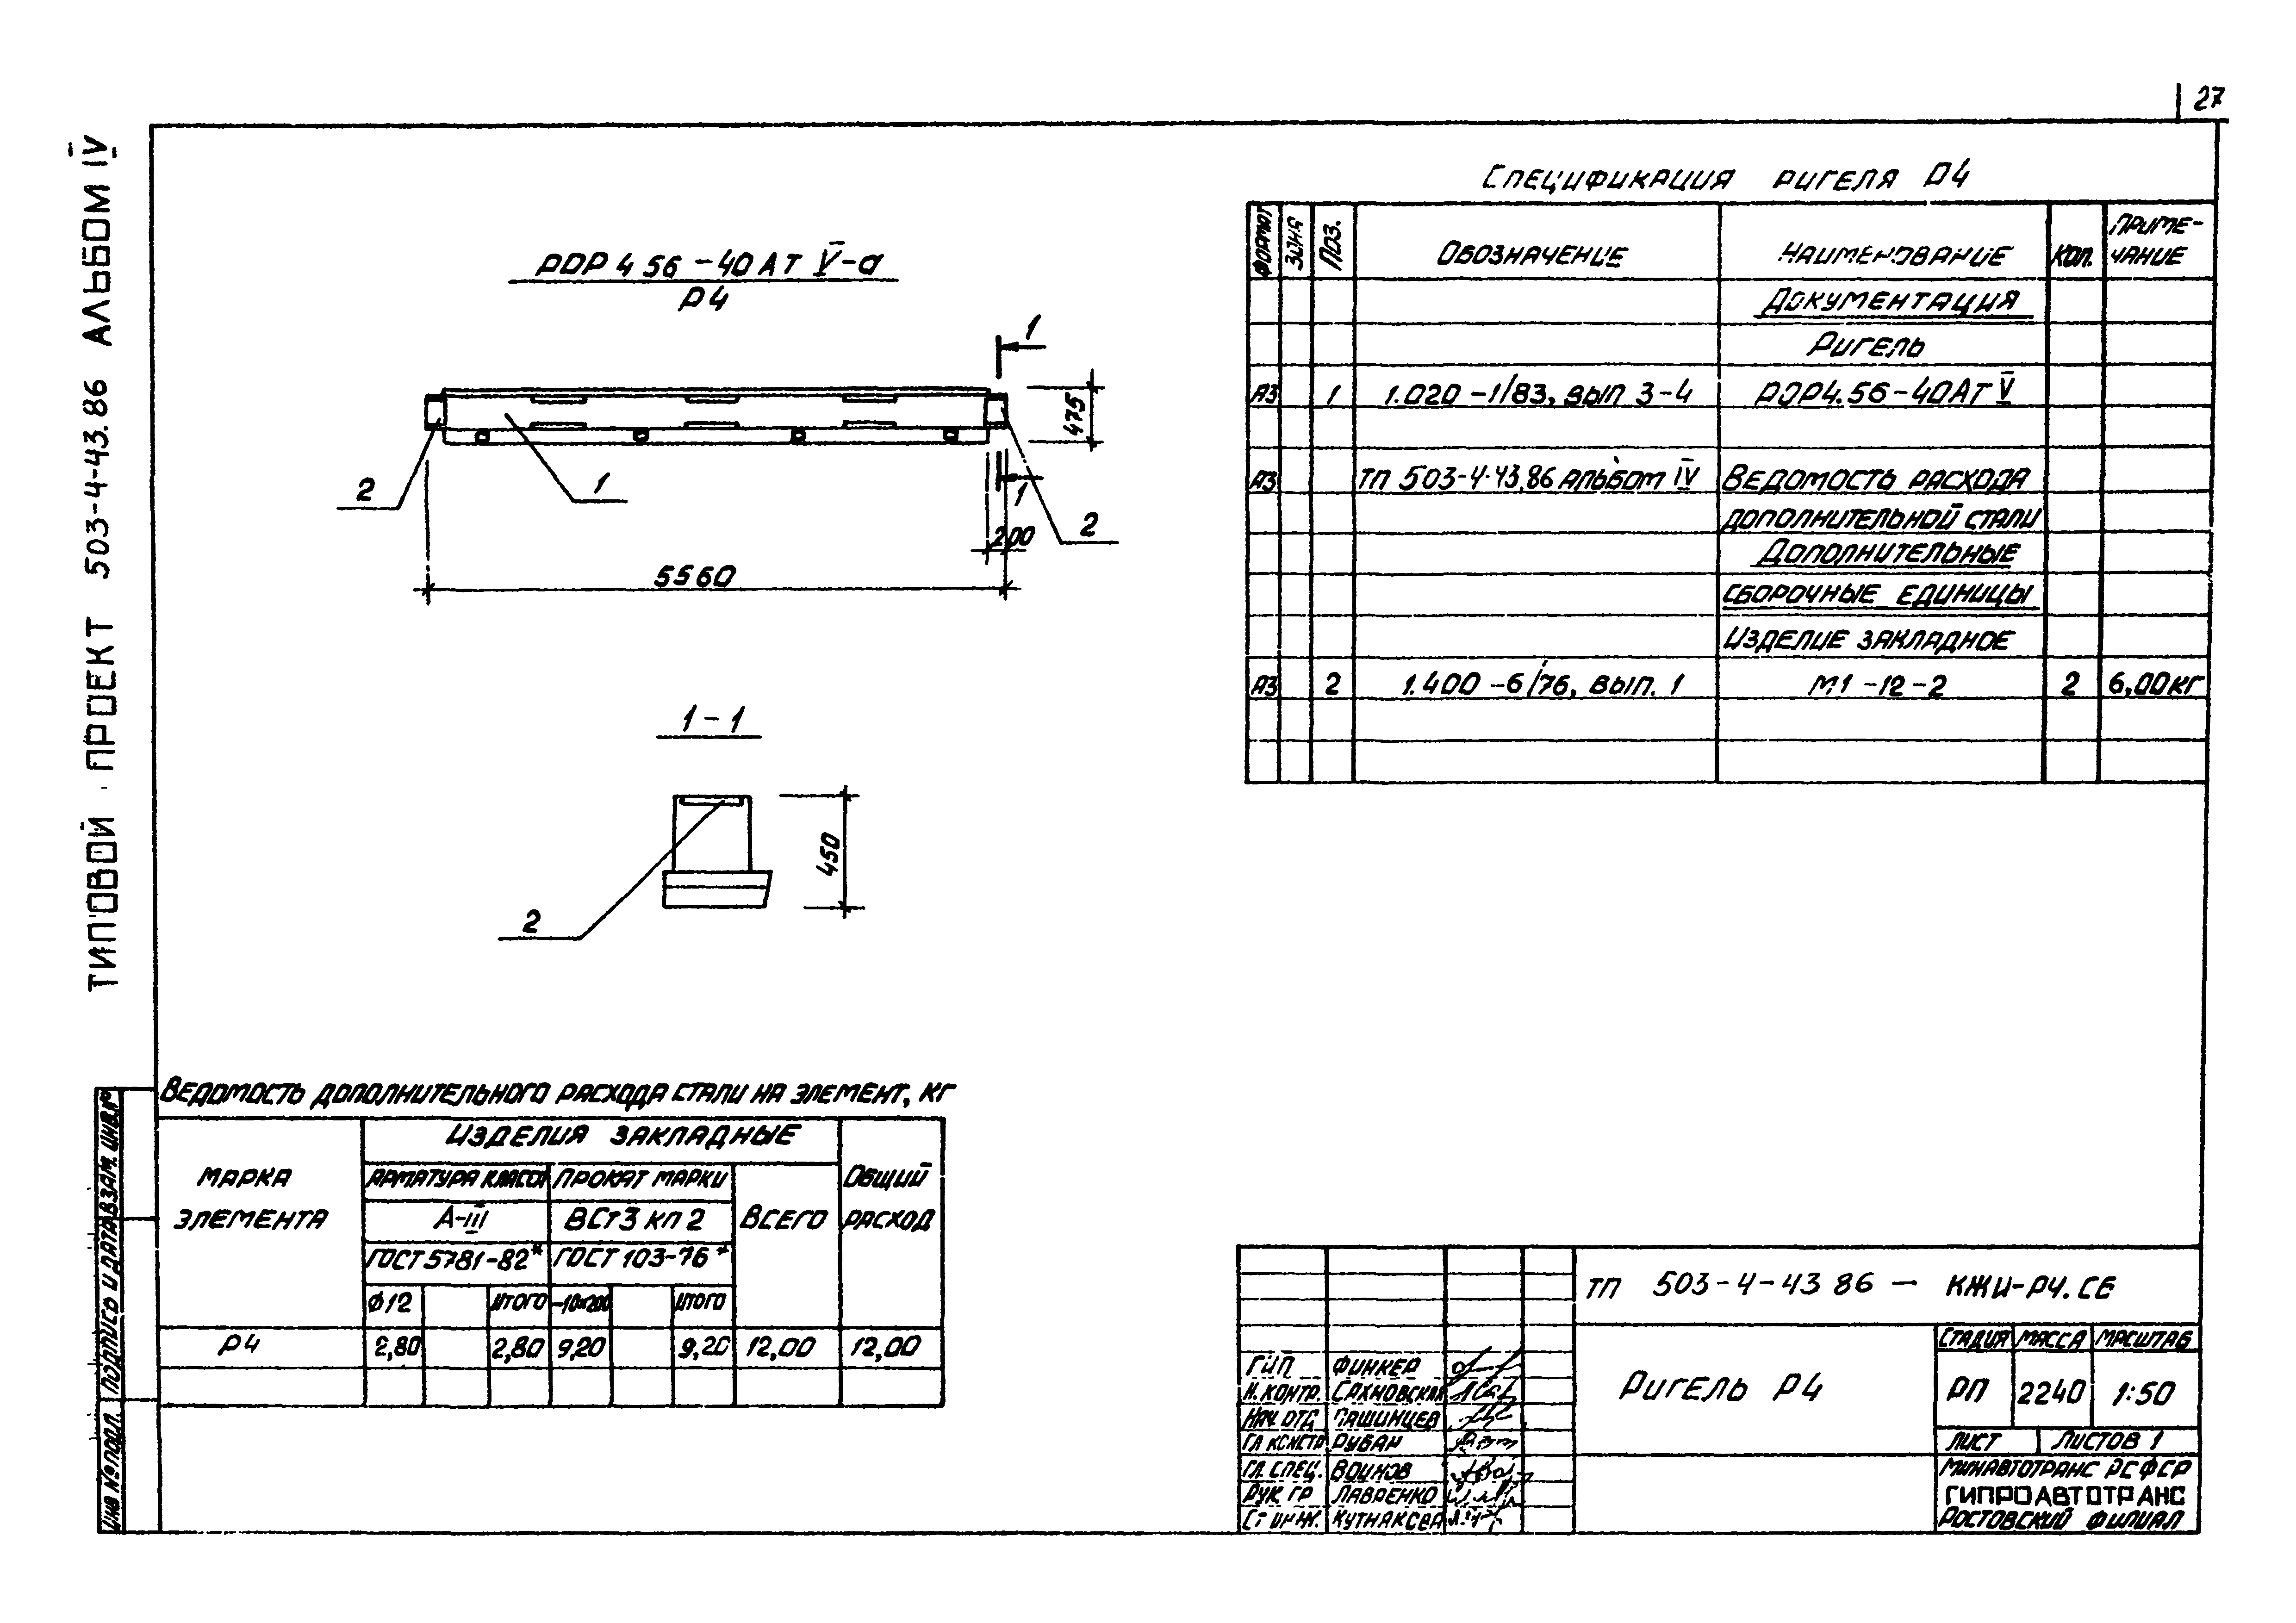 27
ТИПОВОЙ ПРОЕКТ 503-4-43.86 АЛЬБОМ IV
РДР 4 56 -40 Ат V-а
Р4
1
475
2
1
1
2
200
5560
1-1
450
2
Спецификация ригеля Р4
Формат Зона Поз. Обозначение Наименование Кол. Приме-
чание
Документация
Ригель
А3 1 1.020-1/83, вып 3-4 РДР4.56-40Ат V
А3 ТП 503-4-43.86 альбом IV Ведомость расхода
дополнительной стали
Дополнительные
сборочные единицы
Изделие закладное
А3 2 1.400-6/76, вып. 1 М1-12-2 2 6,00кг
Ведомость дополнительного расхода стали на элемент, кг
Марка
элемента
Изделия закладные
Арматура класса Прокат марки
А-III ВСт3 кп 2
ГОСТ 5781-82* ГОСТ 103-76*
Всего
Общий
расход
ф12 Итого -10х200 Итого
Р4 2,80 2,80 9,20 9,20 12,00 12,00
Взам. инв.№
Подпись и дата
Инв № подл.
ТП 503-4-43 86 — КЖИ-Р4.СБ
Стадия Масса Масштаб
Ригель Р4
РП 2240 1:50
Лист Листов 1
Минавтотранс РСФСР
ГИПРОАВТОТРАНС
Ростовский филиал
ГИП Финкер
Н.контр. Сахновская
Нач. отд Пашинцев
Гл констр Рубан
Гл. спец. Воинов
Рук. гр Лавренко
Ст инж.